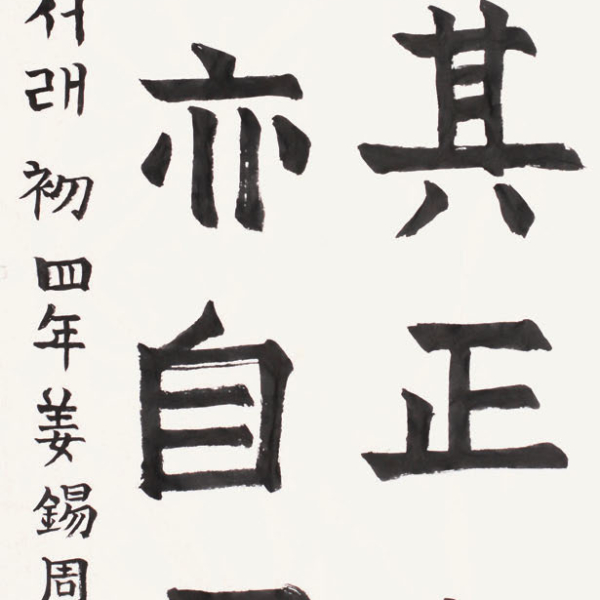 其正
亦自
서래初四年姜錫周